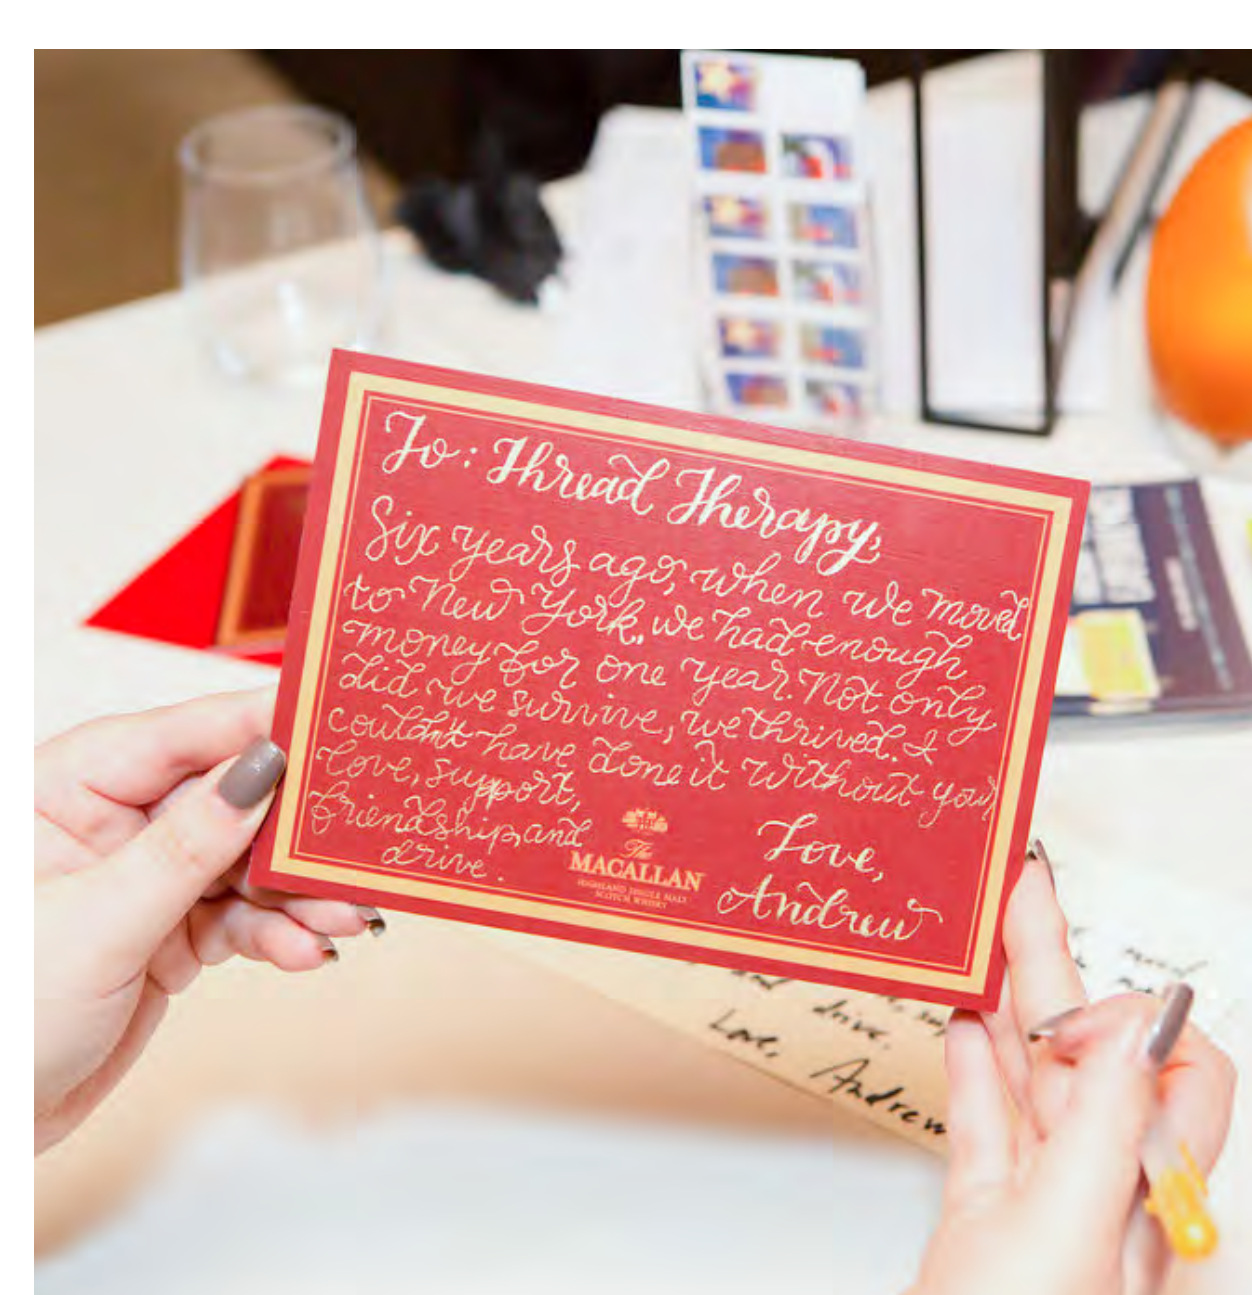 To: Thread Therapy,
Six years ago, when we moved
to New York, we had enough
money for one year. Not only
did we survive, we thrived. I
couldn't have done it without your
love, support,
friendship, and
drive.
The
MACALLAN
HIGHLAND SINGLE MALT
SCOTCH WHISKY
Love,
Andrew
and drive.
Love, Andrew